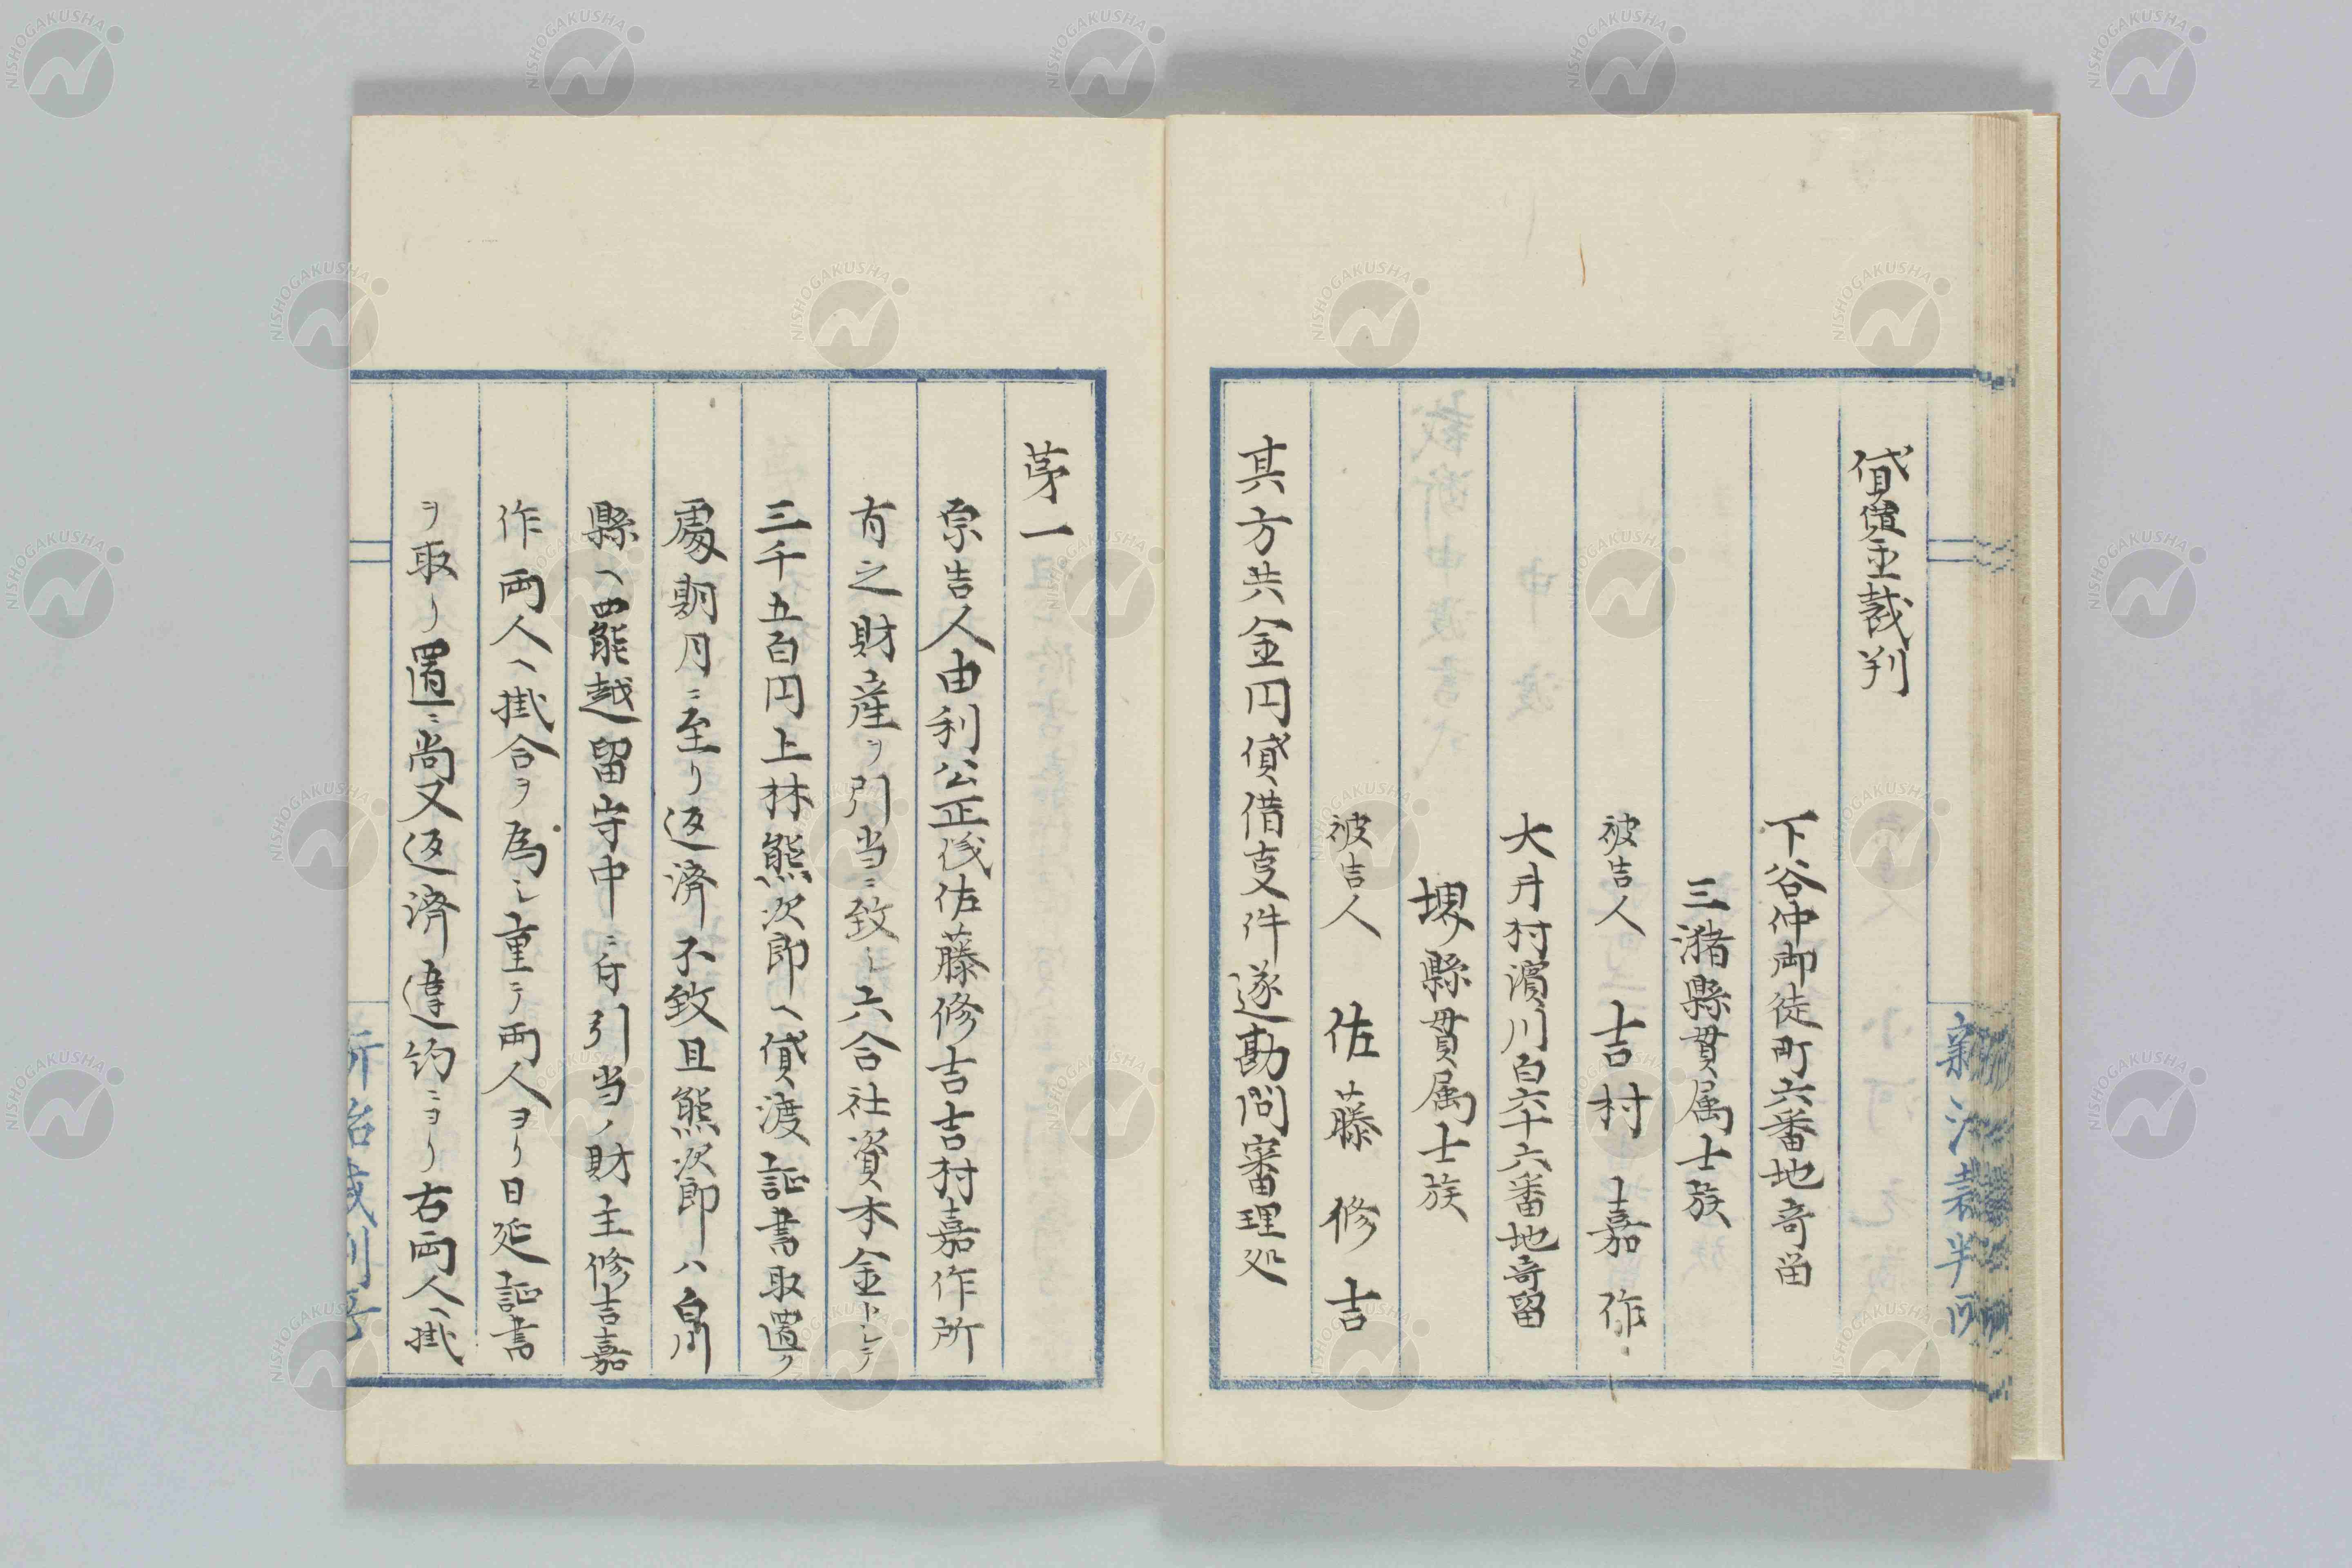 貸償金裁判
下谷仲御徒町六番地寄留
三潴縣貫属士族
被告人 吉村嘉作
大井村濱川百六十六番地寄留
堺縣貫属士族
被告人 佐藤修吉
其方共金円貸借支件遂勘問審理処
苐一
原告人由利公正代佐藤修吉吉村嘉作所
有之財産ヲ引当ニ致シ六合社資本金トシテ
三千五百円上林熊次郎ヘ貸渡証書取置ク
處期月ニ至リ返済不致且熊次郎ハ白川
縣ヘ罷越留守中ニ付引当ノ財主修吉嘉
作両人ヘ掛合ヲ為シ重テ両人ヨリ日延証書
ヲ取リ置ニ尚又返済違約ニヨリ右両人ヘ掛
新治裁判所
NISHOGAKUSHA